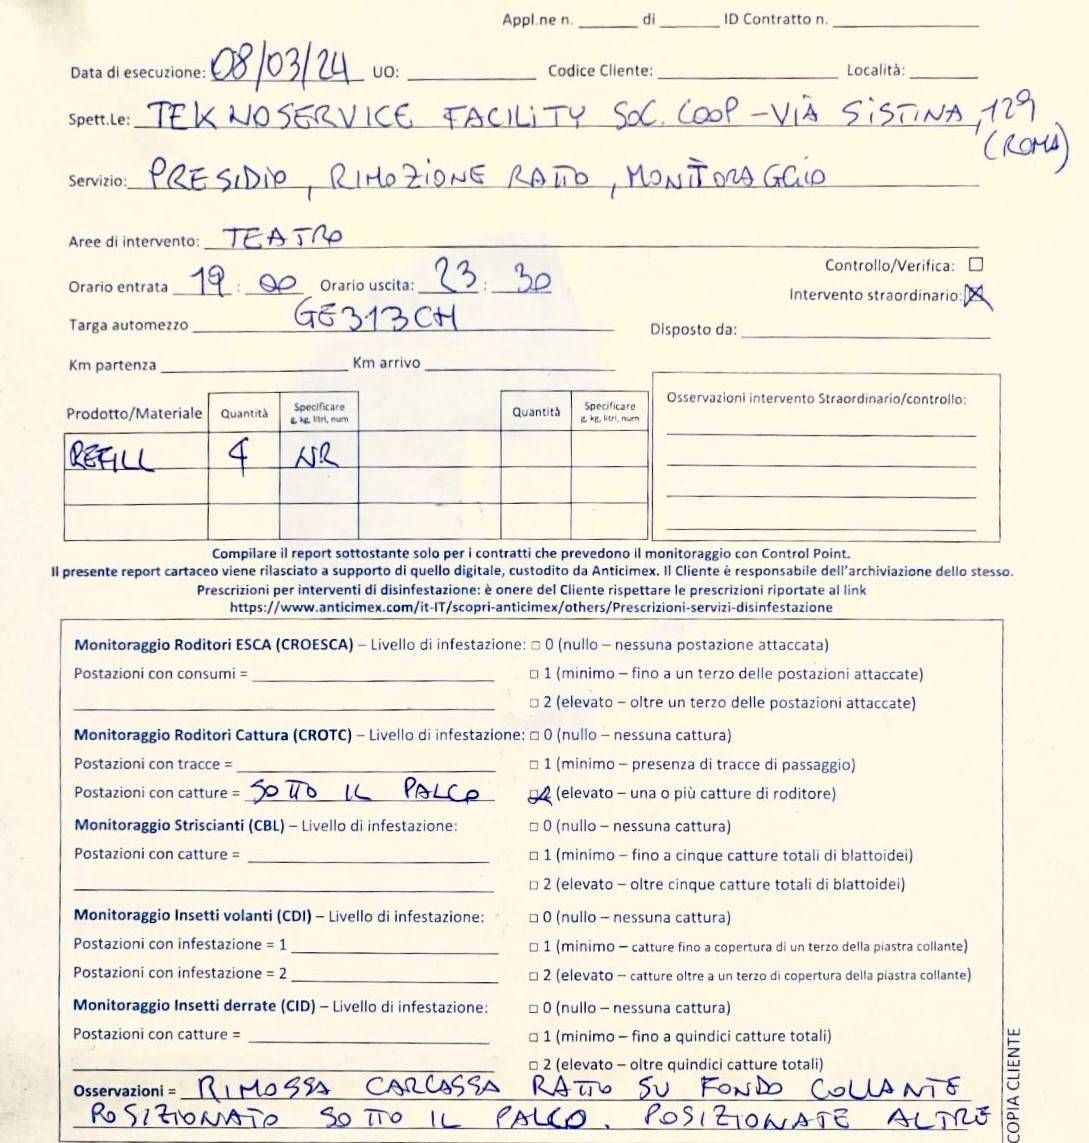 Appl.ne n. ______ di ______ ID Contratto n. ______________
Data di esecuzione: 08/03/24 UO: ____________ Codice Cliente: ________________ Località: ______
Spett.Le: TEKNOSERVICE FACILITY SOC. COOP - VIÀ SISTINA, 129
(ROMA)
Servizio: PRESIDIO, RIMOZIONE RATTO, MONITORAGGIO
Aree di intervento: TEATRO
Controllo/Verifica: ☐
Orario entrata 19 : 00 Orario uscita: 23 : 30
Intervento straordinario: ☒
Targa automezzo GE313CH
Disposto da: ______________
Km partenza ______________ Km arrivo ______________
Osservazioni intervento Straordinario/controllo:
Prodotto/Materiale Quantità Specificare g, kg, litri, num Quantità Specificare g, kg, litri, num
REFILL 4 NR
Compilare il report sottostante solo per i contratti che prevedono il monitoraggio con Control Point.
Il presente report cartaceo viene rilasciato a supporto di quello digitale, custodito da Anticimex. Il Cliente è responsabile dell'archiviazione dello stesso.
Prescrizioni per interventi di disinfestazione: è onere del Cliente rispettare le prescrizioni riportate al link
https://www.anticimex.com/it-IT/scopri-anticimex/others/Prescrizioni-servizi-disinfestazione
Monitoraggio Roditori ESCA (CROESCA) – Livello di infestazione: □ 0 (nullo – nessuna postazione attaccata)
Postazioni con consumi = ______________ □ 1 (minimo – fino a un terzo delle postazioni attaccate)
□ 2 (elevato – oltre un terzo delle postazioni attaccate)
Monitoraggio Roditori Cattura (CROTC) – Livello di infestazione: □ 0 (nullo – nessuna cattura)
Postazioni con tracce = ______________ □ 1 (minimo – presenza di tracce di passaggio)
Postazioni con catture = SOTTO IL PALCO ☒ 2 (elevato – una o più catture di roditore)
Monitoraggio Striscianti (CBL) – Livello di infestazione: □ 0 (nullo – nessuna cattura)
Postazioni con catture = ______________ □ 1 (minimo – fino a cinque catture totali di blattoidei)
□ 2 (elevato – oltre cinque catture totali di blattoidei)
Monitoraggio Insetti volanti (CDI) – Livello di infestazione: □ 0 (nullo – nessuna cattura)
Postazioni con infestazione = 1 ______________ □ 1 (minimo – catture fino a copertura di un terzo della piastra collante)
Postazioni con infestazione = 2 ______________ □ 2 (elevato – catture oltre a un terzo di copertura della piastra collante)
Monitoraggio Insetti derrate (CID) – Livello di infestazione: □ 0 (nullo – nessuna cattura)
Postazioni con catture = ______________ □ 1 (minimo – fino a quindici catture totali)
□ 2 (elevato – oltre quindici catture totali)
Osservazioni = RIMOSSA CARCASSA RATTO SU FONDO COLLANTE
POSIZIONATO SOTTO IL PALCO. POSIZIONATE ALTRE
COPIA CLIENTE